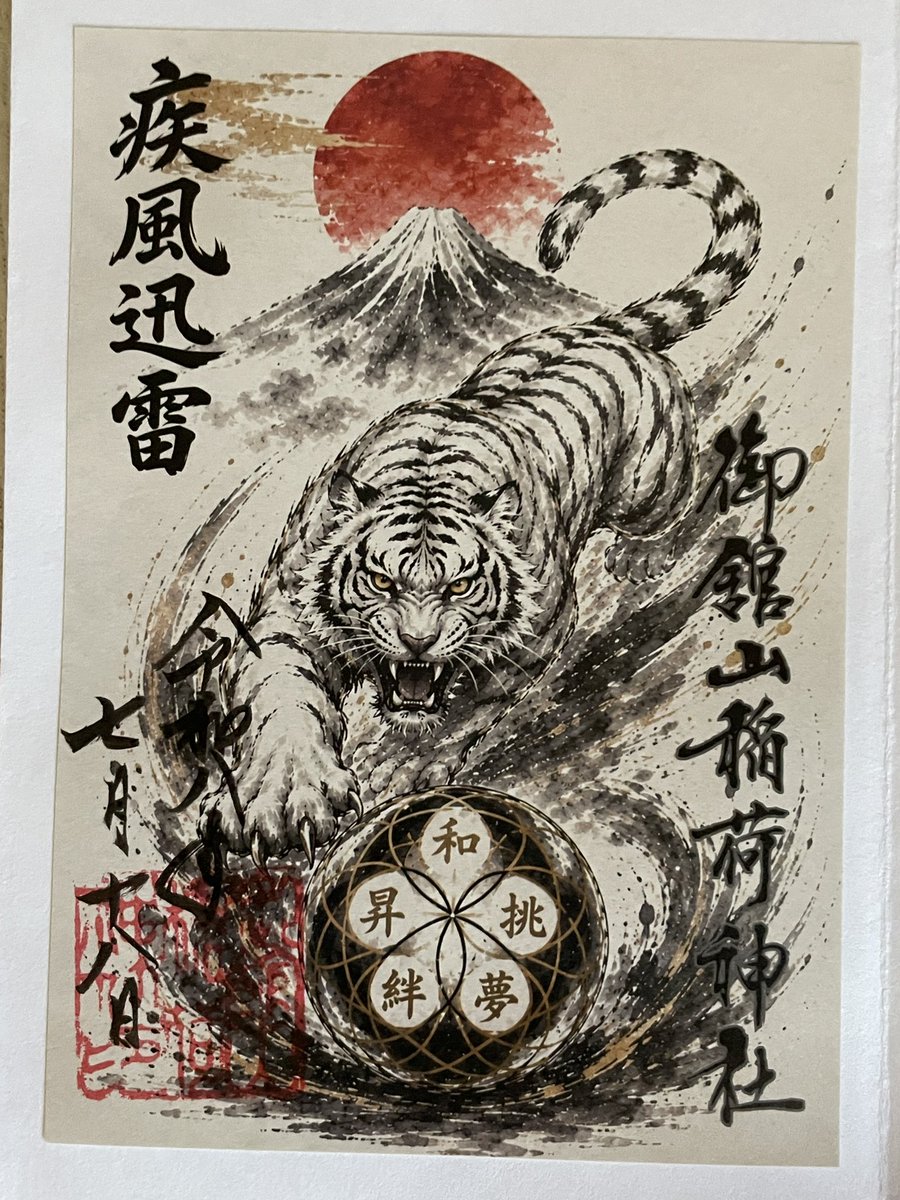 御舘山稲荷神社
疾風迅雷
令和八年
七月十八日
和
挑
夢
絆
昇